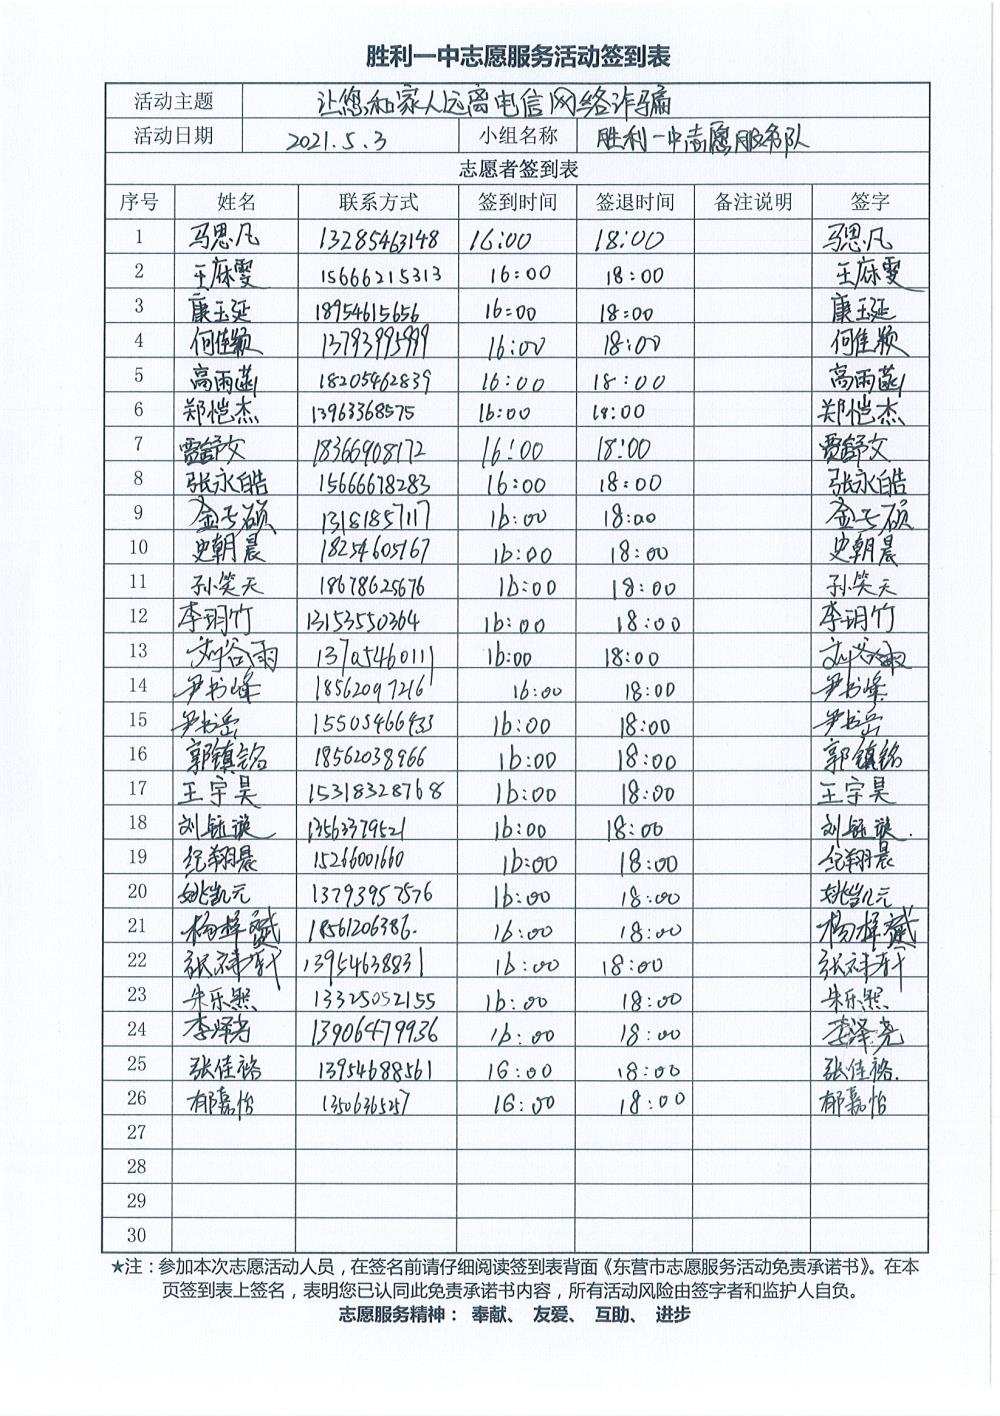 胜利一中志愿服务活动签到表
活动主题 让您和家人远离电信网络诈骗
活动日期 2021.5.3 小组名称 胜利一中志愿服务队
志愿者签到表
序号 姓名 联系方式 签到时间 签退时间 备注说明 签字
1 马思凡 13285463148 16:00 18:00 马思凡
2 王麻雯 15666215313 16:00 18:00 王麻雯
3 康玉延 18954615656 16:00 18:00 康玉延
4 何佳颖 13793995999 16:00 18:00 何佳颖
5 高雨菡 18205462839 16:00 18:00 高雨菡
6 郑恺杰 13963368575 16:00 18:00 郑恺杰
7 贾舒文 18366908172 16:00 18:00 贾舒文
8 张永皓 15666678283 16:00 18:00 张永皓
9 16:00 18:00
10 史朝晨 18254605167 16:00 18:00 史朝晨
11 孙笑天 18678625676 16:00 18:00 孙笑天
12 李玥竹 13153550364 16:00 18:00 李玥竹
13 刘谷雨 13705460111 16:00 18:00 刘谷雨
14 尹书峰 18562097216 16:00 18:00 尹书峰
15 尹书岳 15505466433 16:00 18:00 尹书岳
16 郭镇铭 18562038966 16:00 18:00 郭镇铭
17 王宇昊 15318328768 16:00 18:00 王宇昊
18 刘钰璇 13563379521 16:00 18:00 刘钰璇.
19 纪翔晨 15266001660 16:00 18:00 纪翔晨
20 姚凯元 13793957576 16:00 18:00 姚凯元
21 杨梓 18561206386. 16:00 18:00 杨梓
22 张祥轩 13954638831 16:00 18:00 张祥轩
23 朱乐熙 13325052155 16:00 18:00 朱乐熙
24 李泽尧 13906479936 16:00 18:00 李泽尧
25 张佳裕 13954688561 16:00 18:00 张佳裕.
26 郁嘉怡 13506365257 16:00 18:00 郁嘉怡
27
28
29
30
★注：参加本次志愿活动人员，在签名前请仔细阅读签到表背面《东营市志愿服务活动免责承诺书》。在本
页签到表上签名，表明您已认同此免责承诺书内容，所有活动风险由签字者和监护人自负。
志愿服务精神： 奉献、 友爱、 互助、 进步